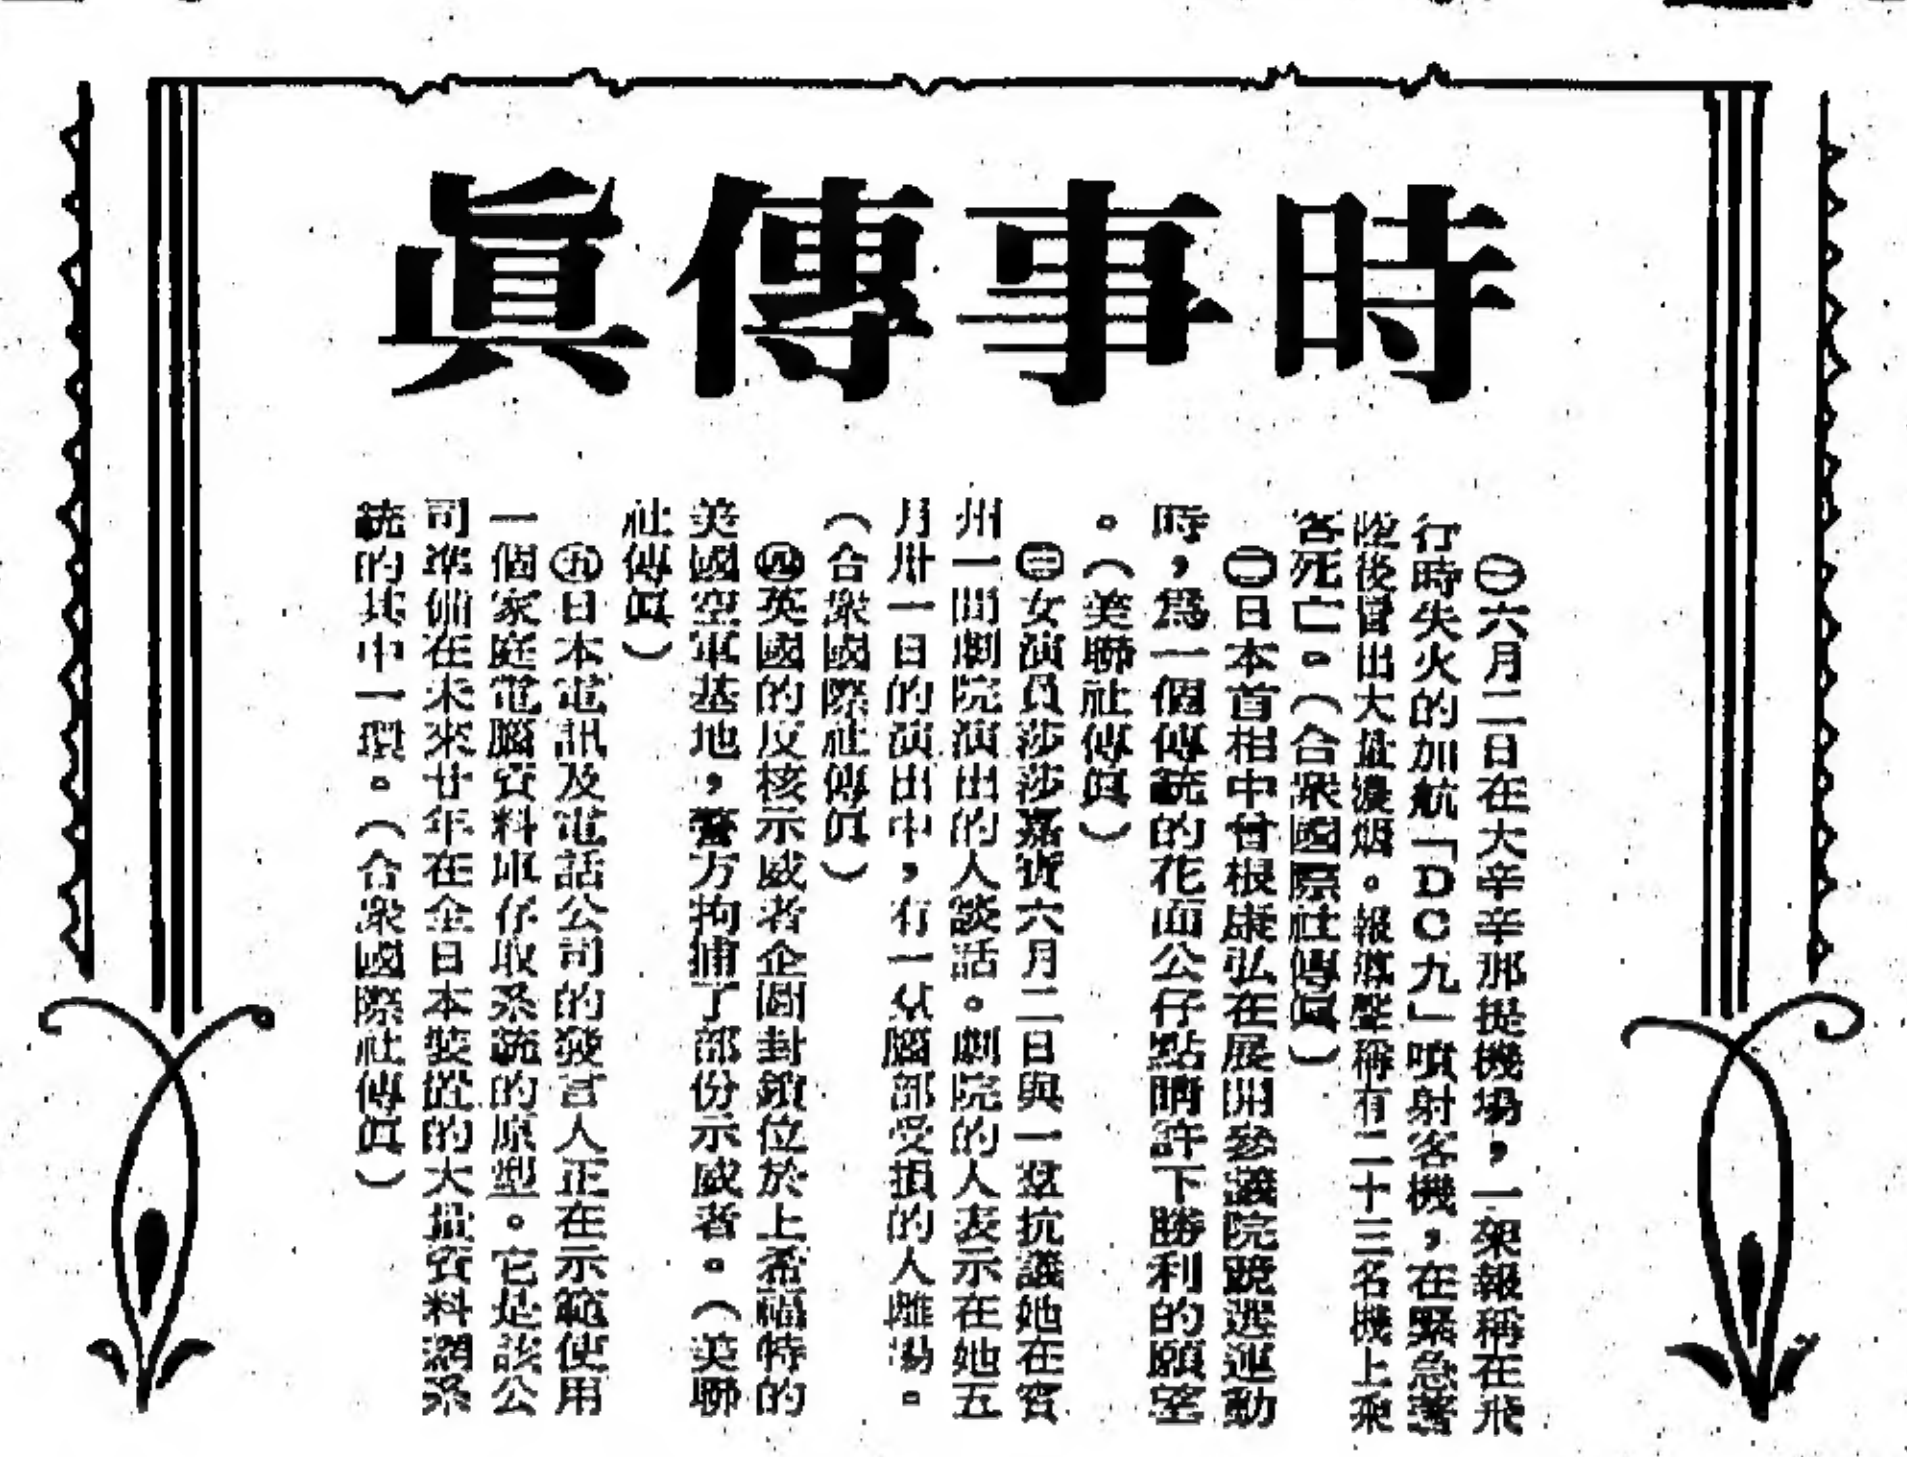 時事傳眞
㊀六月二日在大辛辛那提機場，一架報稱在飛
行時失火的加航「ＤＣ九」噴射客機，在緊急著
陸後冒出大量濃烟。報導聲稱有二十三名機上乘
客死亡。（合衆國際社傳眞）
㊁日本首相中曾根康弘在展開參議院競選運動
時，爲一個傳統的花面公仔點睛許下勝利的願望
。（美聯社傳眞）
㊂女演員莎莎嘉寶六月二日與一羣抗議她在賓
州一間劇院演出的人談話。劇院的人表示在她五
月卅一日的演出中，有一羣腦部受損的人離場。
（合衆國際社傳眞）
㊃英國的反核示威者企圖封鎖位於上希福特的
美國空軍基地，警方拘捕了部份示威者。（美聯
社傳眞）
㊄日本電訊及電話公司的發言人正在示範使用
一個家庭電腦資料庫存取系統的原型。它是該公
司準備在未來廿年在全日本裝置的大量資料網系
統的其中一環。（合衆國際社傳眞）